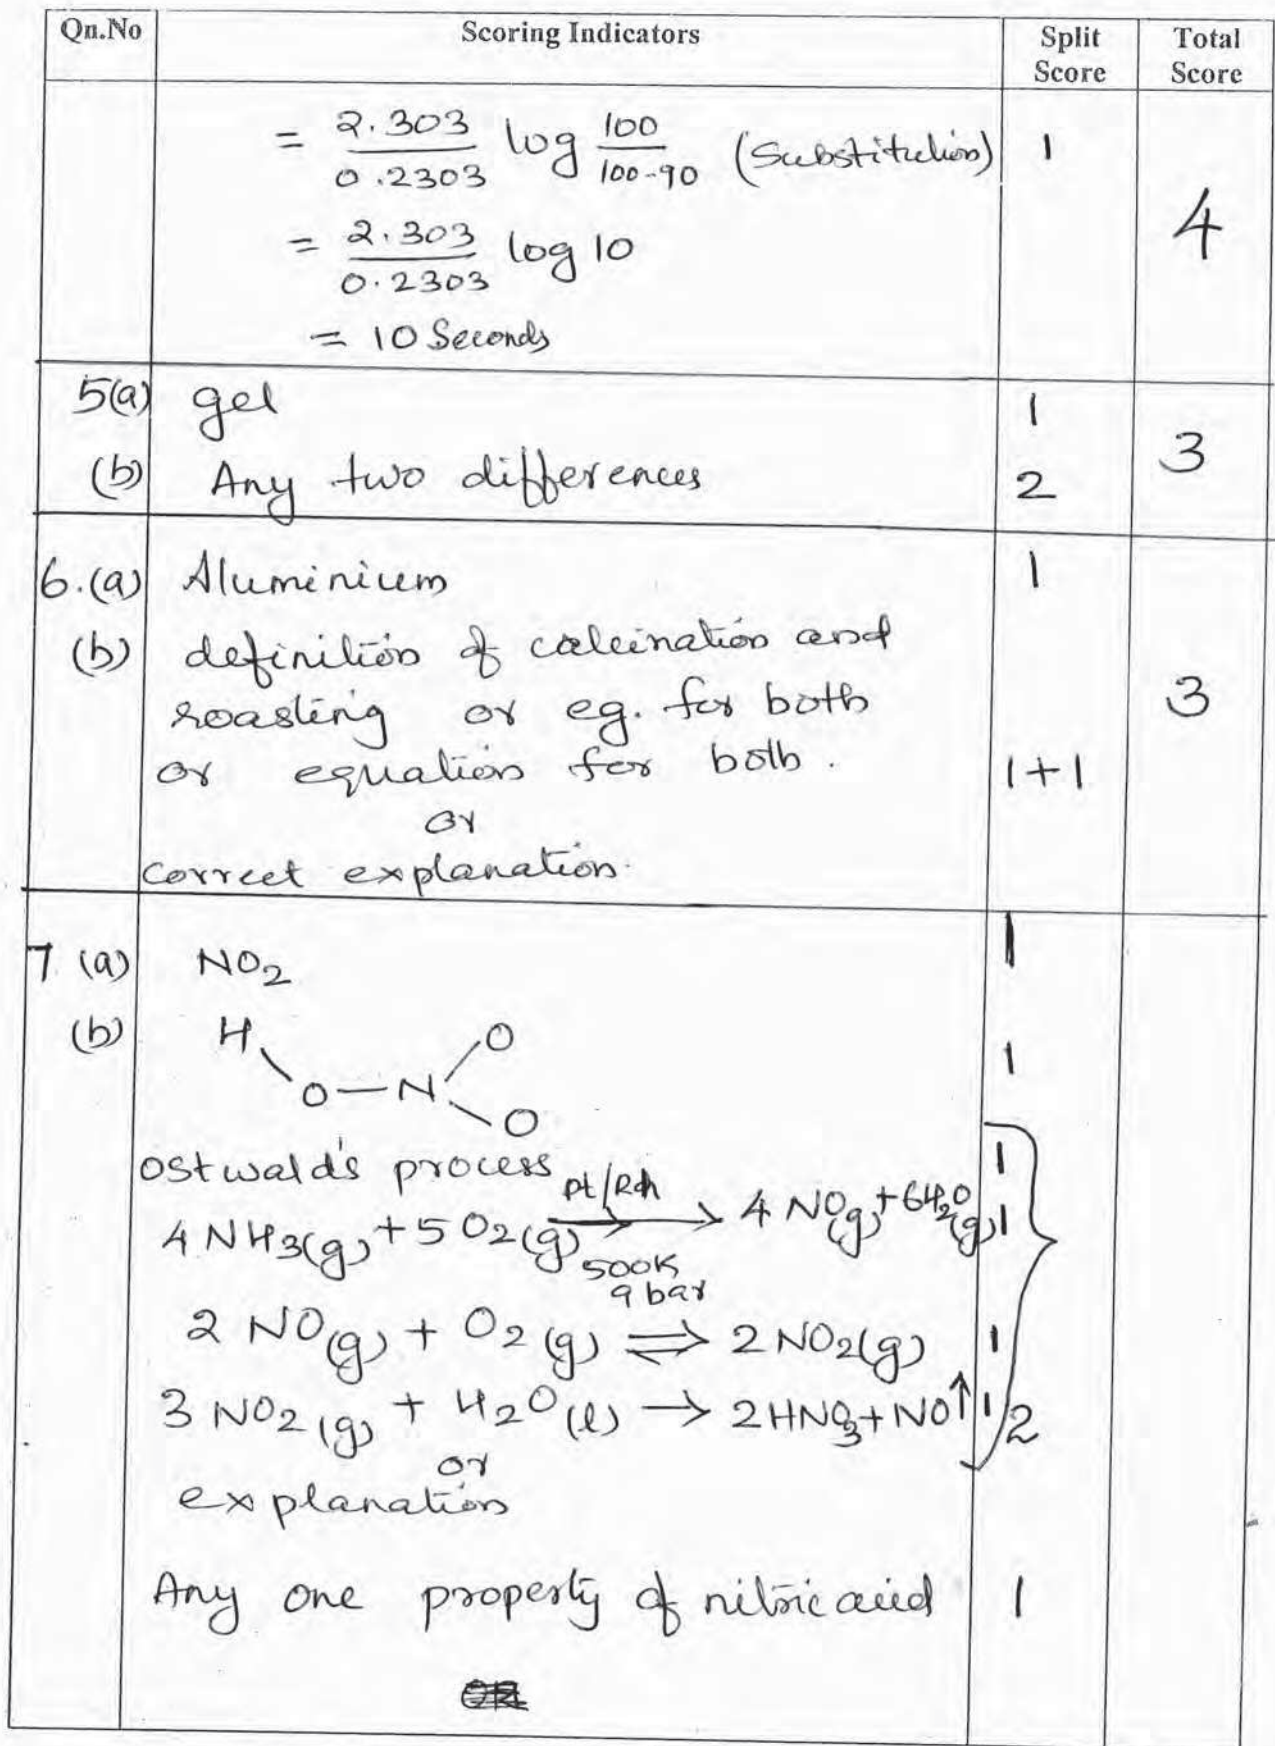 Qn.No Scoring Indicators Split Score Total Score
= 2.303/0.2303 log 100/100-90 (Substitution) 1
= 2.303/0.2303 log 10 4
= 10 Seconds
5(a) gel 1
(b) Any two differences 2 3
6.(a) Aluminium 1
(b) definition of calcination and
roasting or eg. for both 3
or equation for both. 1+1
or
correct explanation.
7 (a) NO2 1
(b) H O 1
O—N
O
Ostwald's process 1
4 NH3(g) + 5 O2(g) Pt/Rh → 500K 9 bar 4 NO(g) + 6H2O(g) 1
2 NO(g) + O2(g) ⇌ 2 NO2(g) 1
3 NO2(g) + H2O(l) → 2HNO3 + NO↑ 1 2
or
explanation
Any one property of nitric acid 1